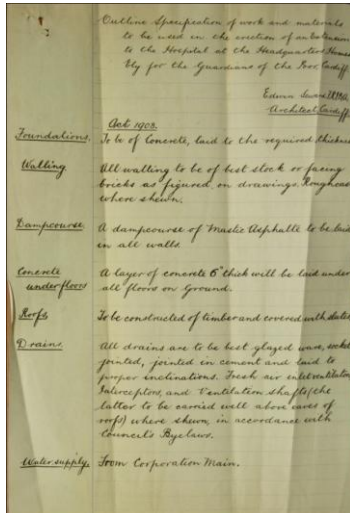 Outline Specification of work and materials
to be used in the erection of an Extension
to the Hospital at the Headquarters Homes
Ely for the Guardians of the Poor Cardiff
Edwin Seward
Architect, Cardiff
Oct 1902
Foundations. To be of Concrete, laid to the required thickness
Walling All walling to be of best stock or facing
bricks as figured, on drawings. Roughcast
where shewn.
Dampcourse A dampcourse of Mastic Asphalte to be laid
in all walls
Concrete A layer of concrete 6" thick will be laid under
under floors all floors on Ground.
Roofs To be constructed of timber and covered with slates
Drains. All drains are to be best glazed ware, socket
jointed, jointed in cement and laid to
proper inclinations. Fresh air inlet ventilation
Interceptors, and Ventilation shafts (the
latter to be carried well above eaves of
roofs) where shewn, in accordance with
Council's Byelaws.
Water supply. From Corporation Main.